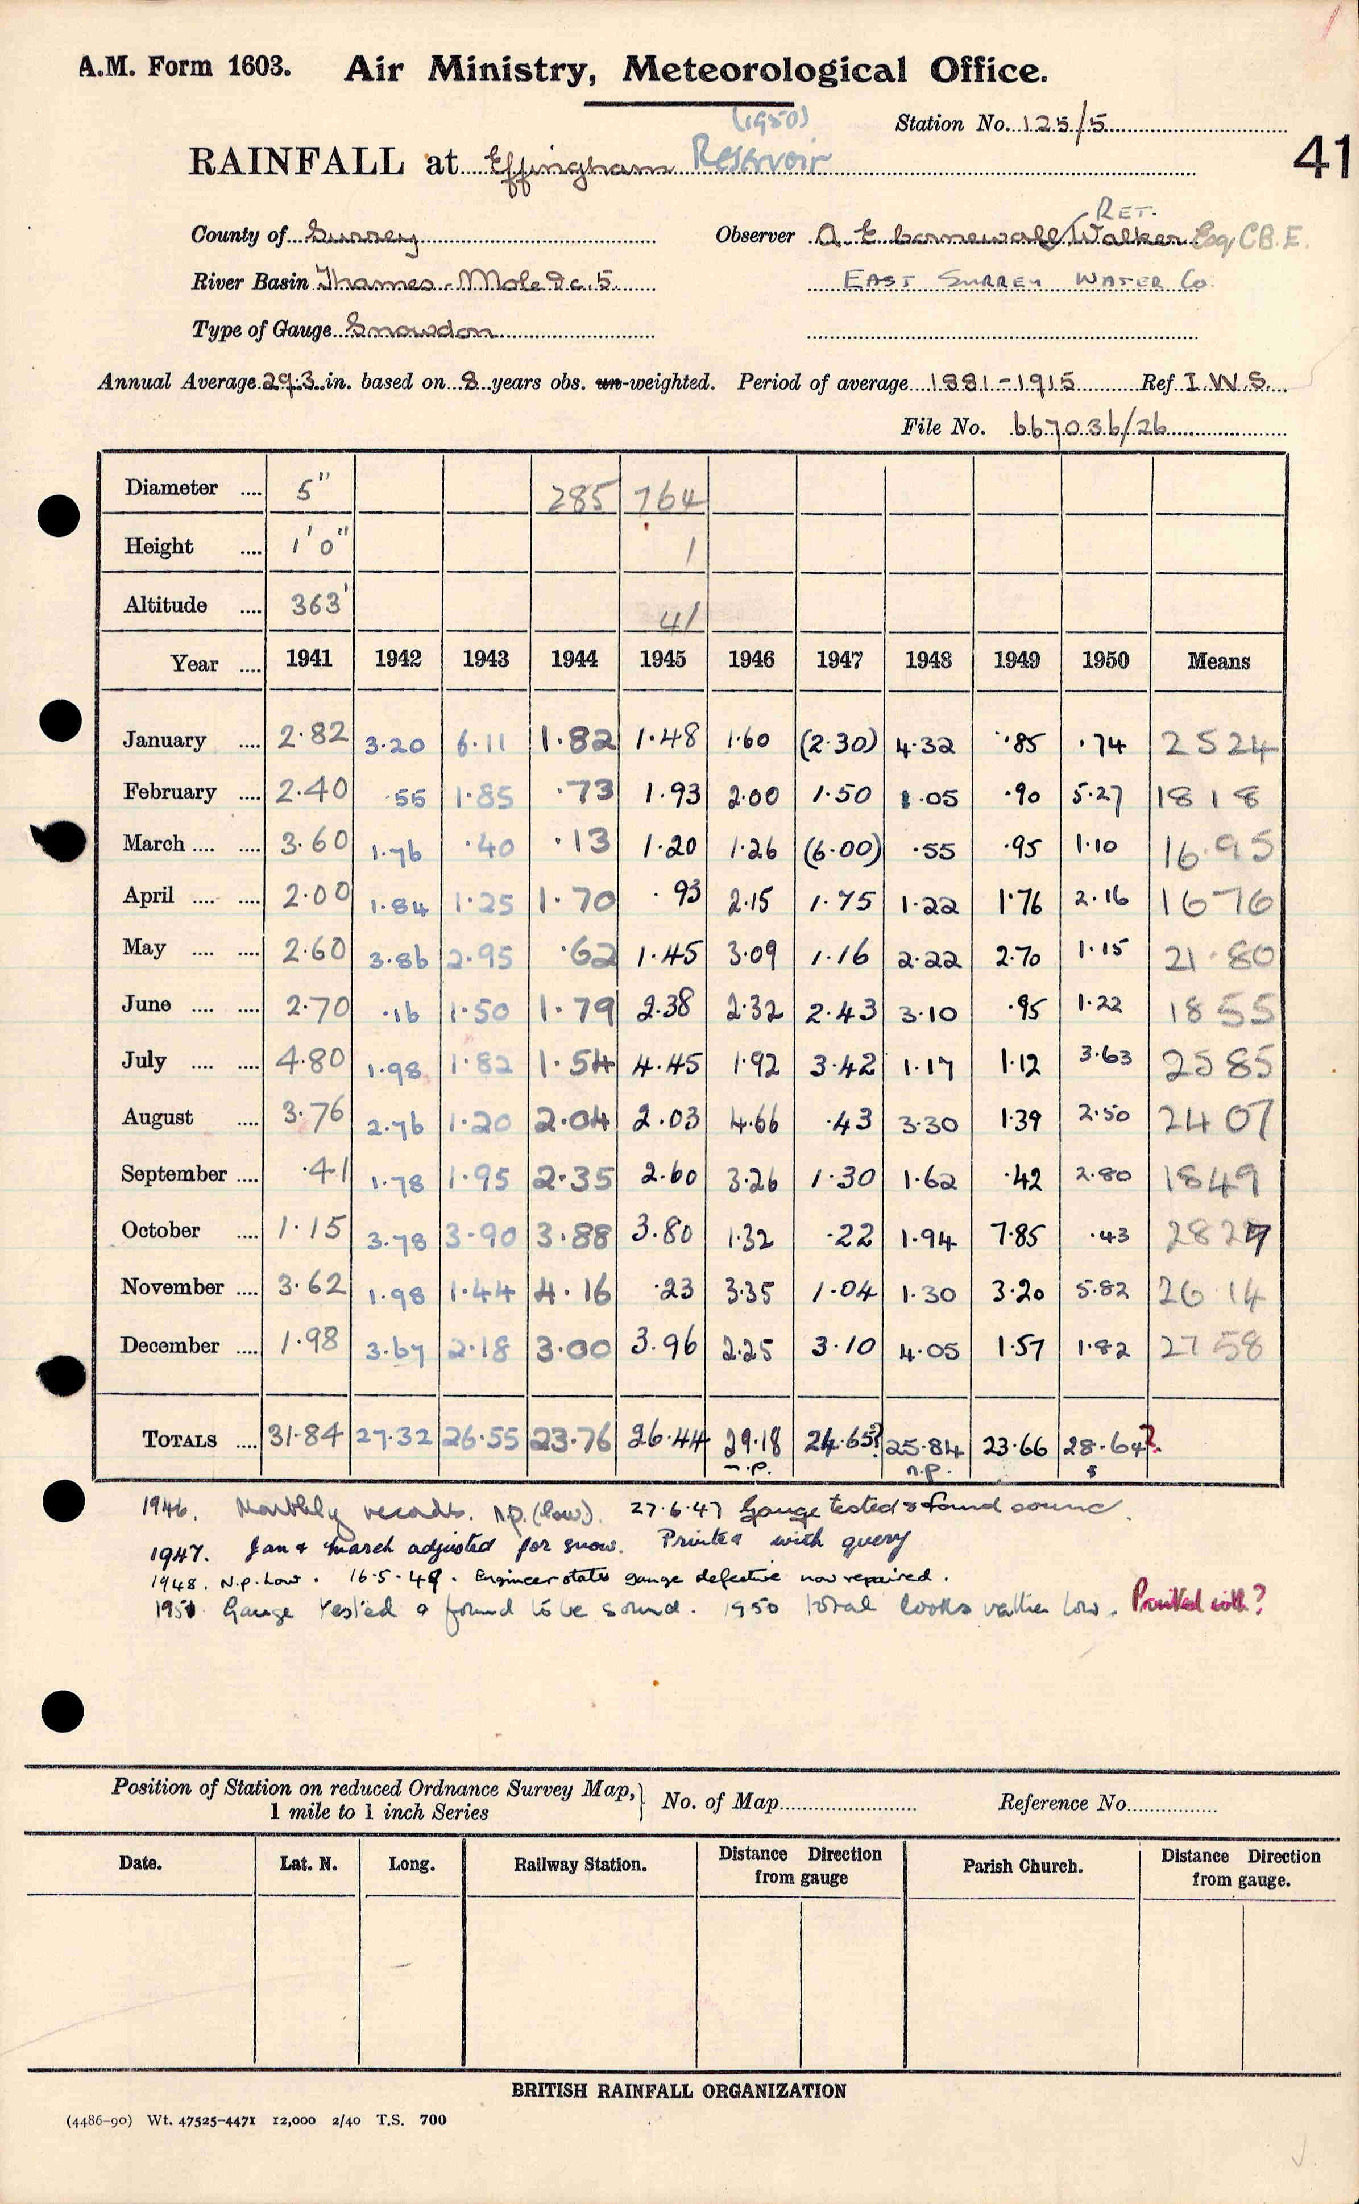 A.M. Form 1603. Air Ministry, Meteorological Office.
(1950)
Station No. 125/5
41
RAINFALL at Effingham Reservoir
RET.
County of Surrey Observer A E Barnewall/Walker Esq CB.E.
River Basin Thames-Mole &c. 5 EAST SURREY WATER Co.
Type of Gauge Snowdon
Annual Average 29.3 in. based on 8 years obs. un-weighted. Period of average 1881-1915 Ref I.W.S.
File No. 667036/26
Diameter .... 5" 285 764
Height .... 1' 0" 1
Altitude .... 363' 41
Year .... 1941 1942 1943 1944 1945 1946 1947 1948 1949 1950 Means
January .... 2.82 3.20 6.11 1.82 1.48 1.60 (2.30) 4.32 .85 .74 2524
February .... 2.40 .55 1.85 .73 1.93 2.00 1.50 1.05 .90 5.27 1818
March .... .... 3.60 1.76 .40 .13 1.20 1.26 (6.00) .55 .95 1.10 16.95
April .... .... 2.00 1.84 1.25 1.70 .93 2.15 1.75 1.22 1.76 2.16 1676
May .... .... 2.60 3.86 2.95 .62 1.45 3.09 1.16 2.22 2.70 1.15 21.80
June .... .... 2.70 .16 1.50 1.79 2.38 2.32 2.43 3.10 .95 1.22 1855
July .... .... 4.80 1.98 1.82 1.54 4.45 1.92 3.42 1.17 1.12 3.63 2585
August .... 3.76 2.76 1.20 2.04 2.03 4.66 .43 3.30 1.39 2.50 2407
September .... .41 1.78 1.95 2.35 2.60 3.26 1.30 1.62 .42 2.80 1849
October .... 1.15 3.78 3.90 3.88 3.80 1.32 .22 1.94 7.85 .43 2827
November .... 3.62 1.98 1.44 4.16 .23 3.35 1.04 1.30 3.20 5.82 26 14
December .... 1.98 3.67 2.18 3.00 3.96 2.25 3.10 4.05 1.57 1.82 27 58
TOTALS .... 31.84 27.32 26.55 23.76 26.44 29.18 24.65? 25.84 23.66 28.64?
n.p. n.p. s
1946. Monthly records. n.p. (low). 27.6.47 Gauge tested & found sound.
1947. Jan & March adjusted for snow. Printed with query
1948. N.p. Low. 16.5.49. Engineer states gauge defective now repaired.
1951 Gauge tested & found to be sound. 1950 total looks rather low. Printed with?
Position of Station on reduced Ordnance Survey Map, } No. of Map Reference No.
1 mile to 1 inch Series
Date. Lat. N. Long. Railway Station. Distance Direction from gauge Parish Church. Distance Direction from gauge.
BRITISH RAINFALL ORGANIZATION
(4486-90) Wt. 47525-4471 12,000 2/40 T.S. 700